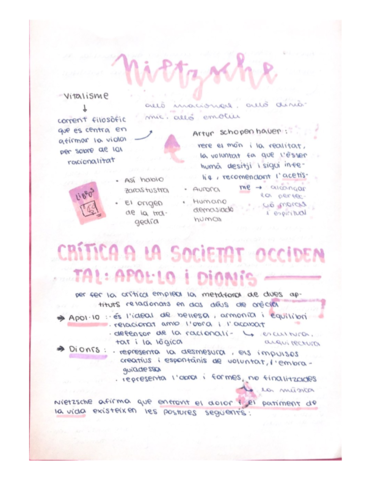 Nietzsche
Vitalisme
corrent filosòfic
que es centra en
afirmar la vida
per sobre de la
racionalitat
allò irracional, allò dinà-
mic, allò emotiu
Artur Schopenhauer:
rere el món i la realitat,
la voluntat fa que l'ésser
humà desitji i sigui infe-
liç, recomendant l'
me → alcançar
la
i espiritual
· Así habló
zaratustra
· El origen
de la tra-
gedia
· Aurora
· Humano
demasiado
humano
CRÍTICA A LA SOCIETAT OCCIDEN
TAL: APOL·LO I DIONÍS
per fer la crítica emplea la metàfora de dues ap-
tituts relacionats en dos déus de
→ Apol·lo: · és l'ideal de bellesa, armonia i equilibri
relacional amb l'obra i
· defensor de la racionali-
tat i la lògica
→ escultura,
arquitectura
→ Dionís: · representa la desmesura, els impulsos
creatius i espontànis de voluntat, l'embria-
guadessa
· representa l'obra i formes, no finalitzades
→ la música
Nietzsche afirma que enfront el dolor i el patiment de
la vida existeixen les postures següents: